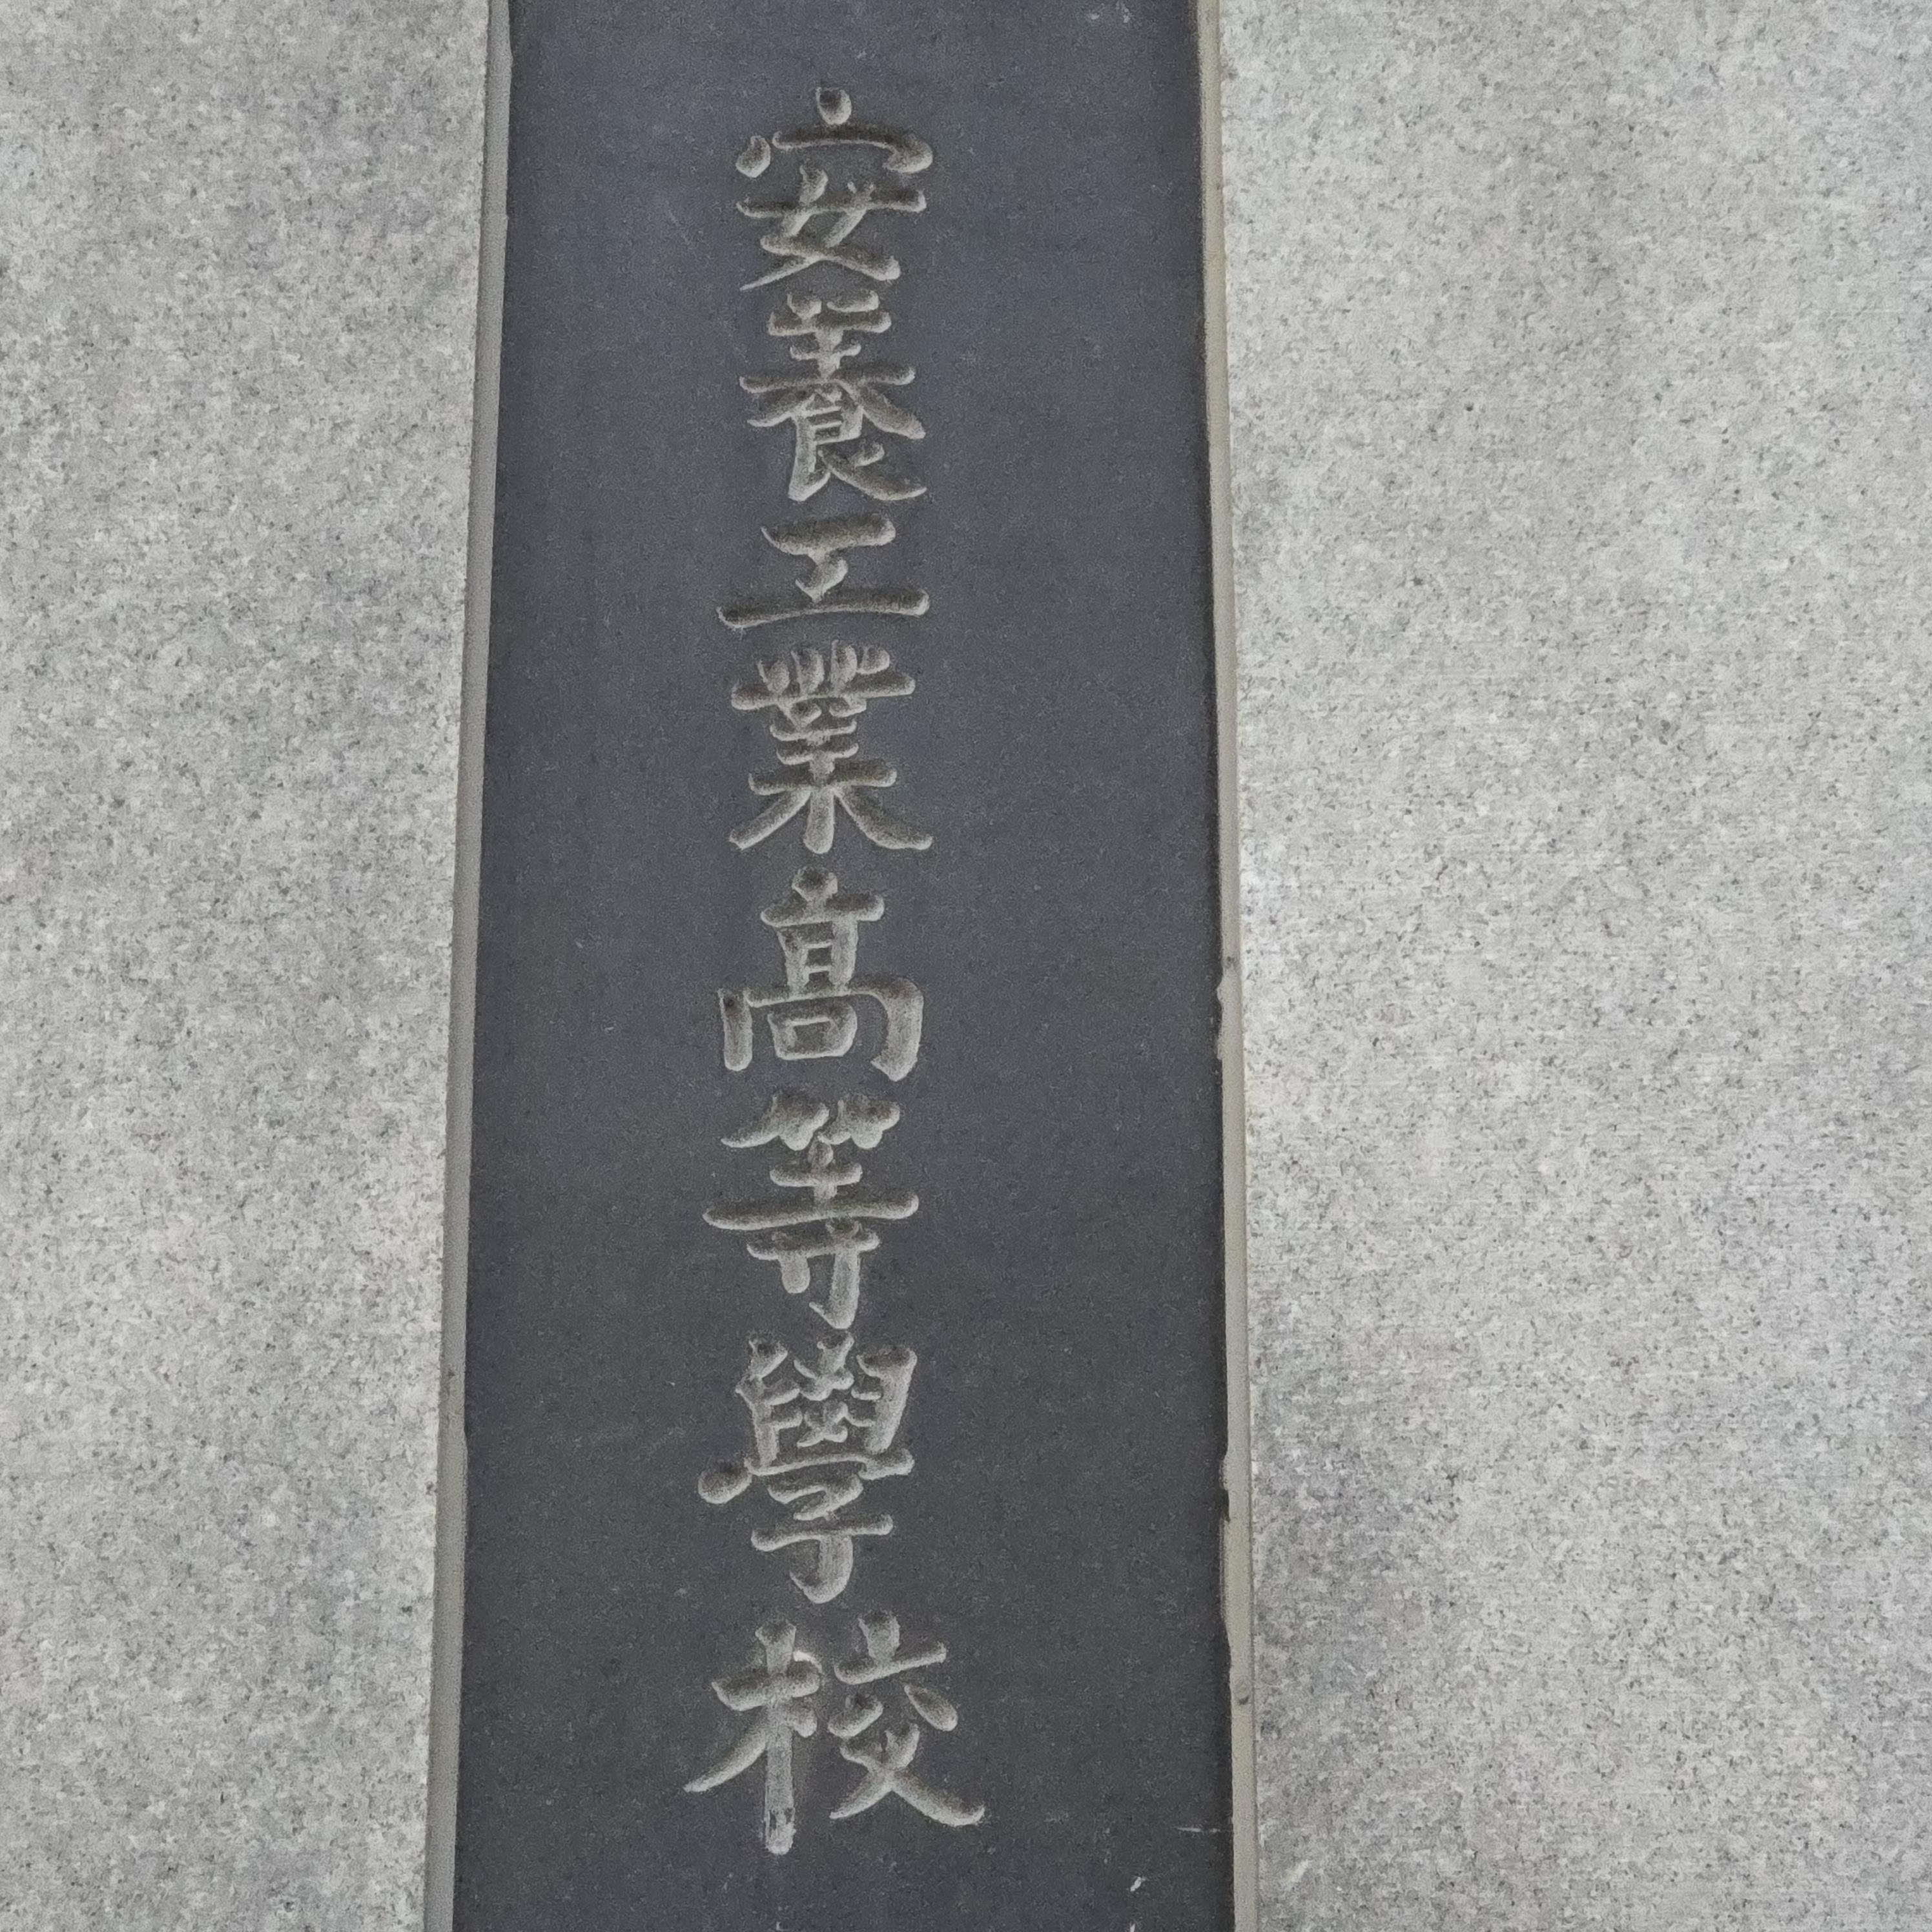 安養工業髙等學校